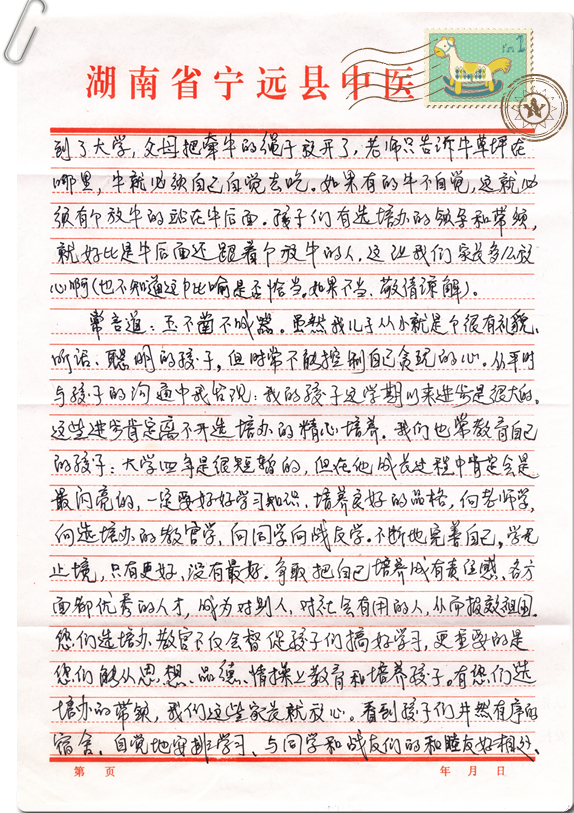 湖南省宁远县中医
到了大学，父母把牵牛的绳子放开了，老师只告诉牛草坪在
哪里，牛就必须自己自觉去吃。如果有的牛不自觉，这就必
须有个放牛的站在牛后面。孩子们有选培办的领导和带领，
就好比是牛后面还跟着个放牛的人，这让我们家长多么放
心啊（也不知道这个比喻是否恰当。如果不当、敬请谅解）。
常言道：玉不凿不成器。虽然我儿子从小就是个很有礼貌、
听话、聪明的孩子，但时常不能控制自己贪玩的心。从平时
与孩子的沟通中我发现：我的孩子这学期以来进步是很大的。
这些进步肯定离不开选培办的精心培养。我们也常教育自己
的孩子：大学四年是很短暂的，但在他成长过程中肯定会是
最闪亮的，一定要好好学习知识、培养良好的品格，向老师学，
向选培办的教官学，向同学向战友学。不断地完善自己，学无
止境，只有更好，没有最好。争取把自己培养成有责任感、各方
面都优秀的人才，成为对别人，对社会有用的人，从而报效祖国。
您们选培办教官不仅会督促孩子们搞好学习，更重要的是
您们能从思想、品德、情操上教育和培养孩子。有您们选
培办的带领，我们这些家长就放心。看到孩子们井然有序的
宿舍、自觉地安排学习、与同学和战友们的和睦友好相处、
第 页 年 月 日